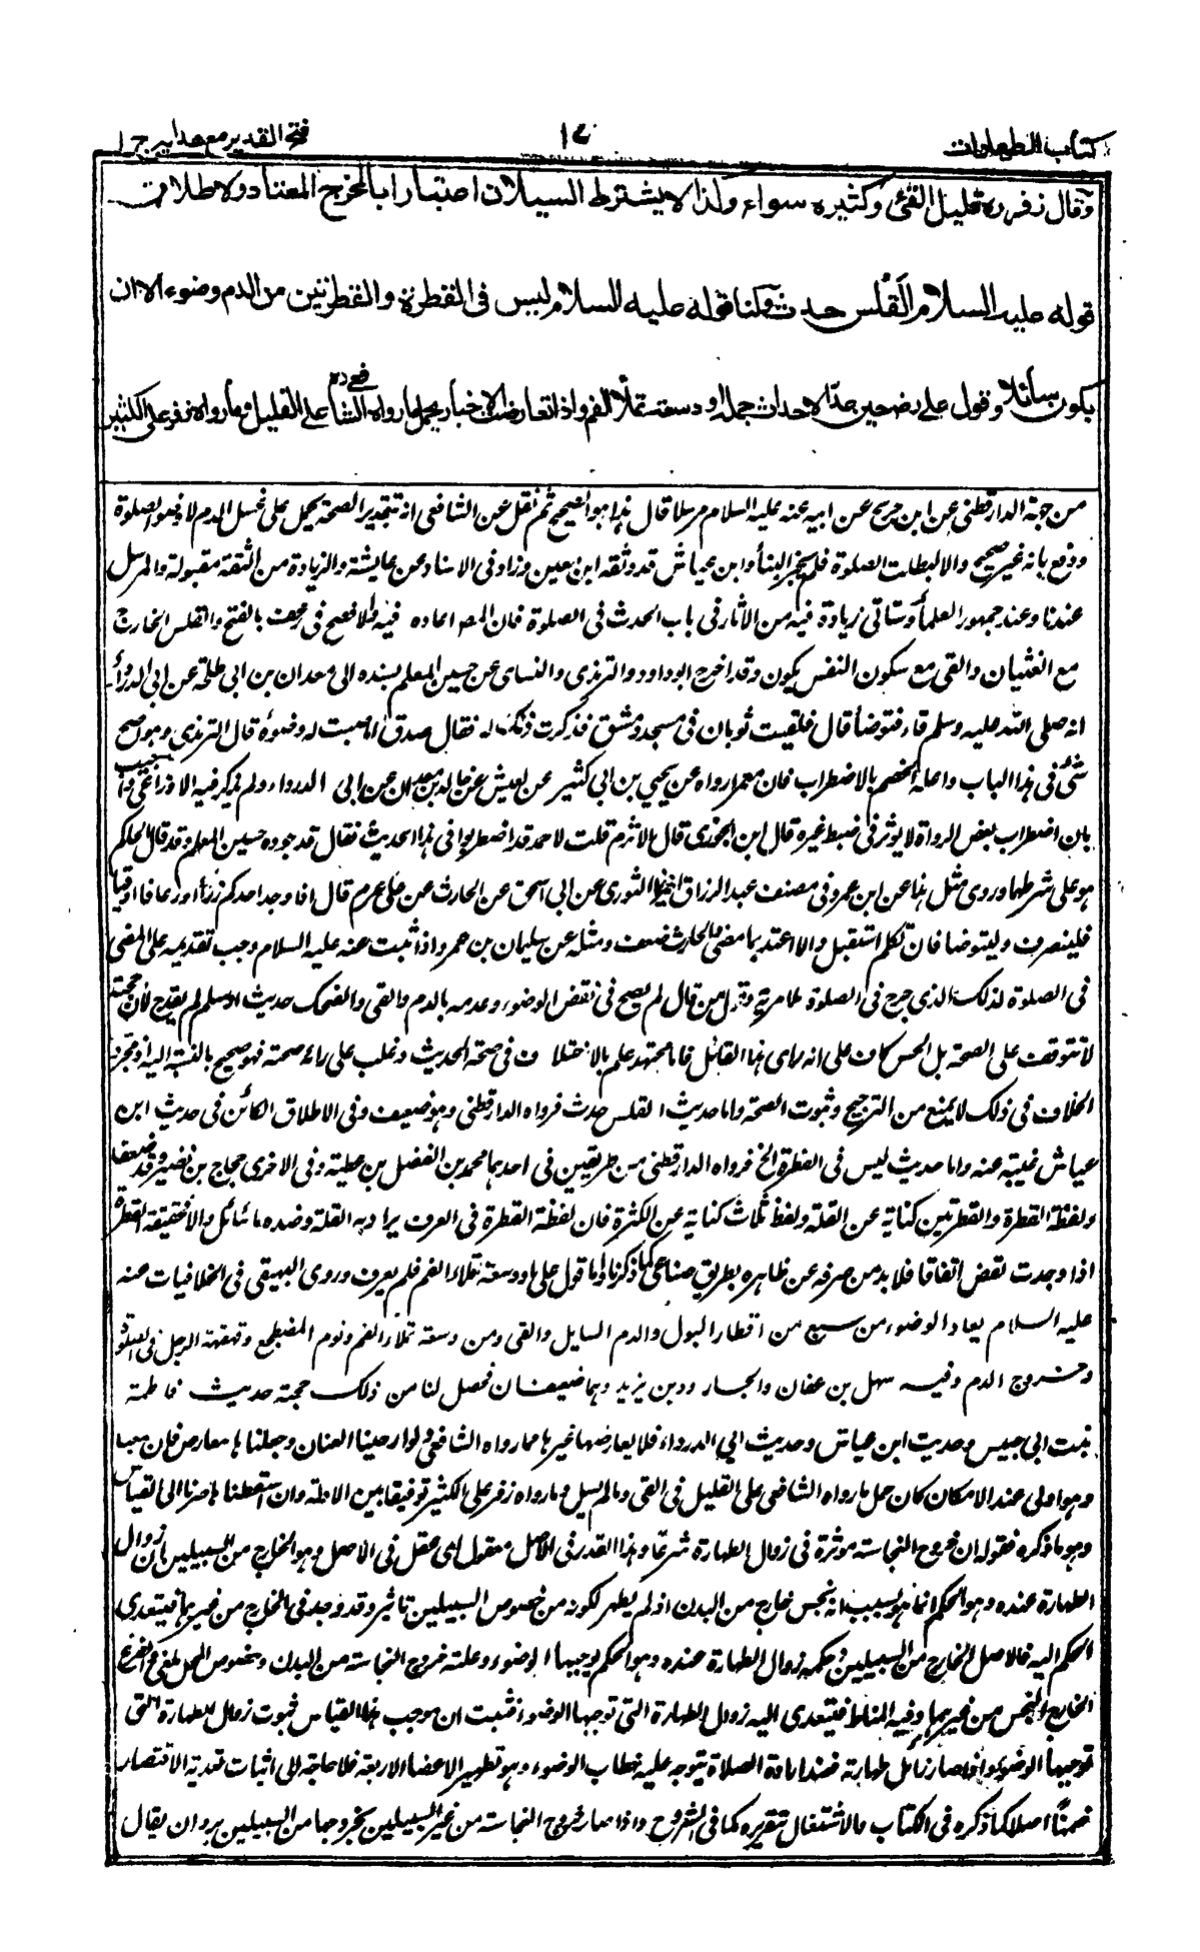 كتاب الطهارات
١٧
فتح القدير مع هدايه ج ١
وقال زفر ره قليل القئ وكثيره سواء وكذا لا يشترط السيلان اعتبارا بالمخرج المعتاد ولاطلاق
قوله عليه السلام القلس حدث ولنا قوله عليه السلام ليس فى القطرة والقطرتين من الدم وضوء الا ان
يكون سائلا وقول على رض حين عد الاحداث جملة او دسعة تملأ الفم واذا تعارضت الاخبار يحمل ما رواه الشافعى ره على القليل وما رواه زفر على الكثير
من جهة الدارقطنى عن ابن جريج عن ابيه عنه عليه السلام مرسلا قال هذا هو الصحيح ثم نقل عن الشافعى انه بتقدير الصحة يحمل على غسل الدم لا وضوء الصلوة
ودفع بانه غير صحيح والا لبطلت الصلوة فلم يجز البناء وابن عياش قد وثقه ابن معين وزاد فى الاسناد عن عائشة والزيادة من الثقة مقبولة والمرسل
عندنا وعند جمهور العلماء وستاتى زيادة فيه من الآثار فى باب الحدث فى الصلوة فان المص اعاده فيه ولافصح فى رعف بالفتح والقلس الخارج
مع الغثيان والقى مع سكون النفس يكون وقد اخرج ابو داود والترمذى والنساى عن حسين المعلم بسنده الى معدان بن ابى طلحة عن ابى الدرداء
انه صلى الله عليه وسلم قاء فتوضأ قال فلقيت ثوبان فى مسجد دمشق فذكرت ذلك له فقال صدق انا صببت له وضوءه قال الترمذى وهو اصح
شئ فى هذا الباب واعله الخصم بالاضطراب فان معمرا رواه عن يحيى بن ابى كثير عن يعيش عن خالد بن معدان عن ابى الدرداء ولم يذكر فيه الاوزاعى واجيب
بان اضطراب بعض الرواة لا يوثر فى ضبط غيره قال ابن الجوزى قال الاثرم قلت لاحمد قد اضطربوا فى هذا الحديث فقال قد جوده حسين المعلم وقد قال الحاكم
هو على شرطهما وروى مثل هذا عن ابن عمر وفى مصنف عبد الرزاق اخبرنا الثورى عن ابى اسحق عن الحارث عن على رض قال اذا وجد احدكم رزأ او رعافا او قيا
فلينصرف وليتوضا فان تكلم استقبل والا اعتد بما مضى والحارث ضعف ومثله عن سليمان بن عمر واذا ثبت عنه عليه السلام وجب تقديمه على المضى
فى الصلوة لذلك الذى جرح فى الصلوة طاهرته وقول من قال لم يصح فى نقض الوضوء وعدمه بالدم والقى والضحك حديث ان سلم لم يقدح لأن الحجة
لا تتوقف على الصحة بل الحسن كاف على انه راى هذا القائل فاما مجتهد علم بالاختلاف فى صحة الحديث وغلب على رائه صحته فهو صحيح بالنسبة اليه اذ مجرد
الخلاف فى ذلك لا يمنع من الترجيح وثبوت الصحة واما حديث القلس حدث فرواه الدارقطنى وهو ضعيف وفى الاطلاق الكائن فى حديث ابن
عياش غنية عنه واما حديث ليس فى القطرة الخ فرواه الدارقطنى من طريقين فى احدهما محمد بن الفضل بن عطية وفى الاخرى حجاج بن نصير وقد ضعفا
ولفظة القطرة والقطرتين كناية عن القلة ولفظ ثلاث كناية عن الكثرة فان لفظة القطرة فى العرف يراد به القلة وضده ما سائل والا فحقيقة القطرة
اذا وجدت نقض اتفاقا فلا بد من صرفه عن ظاهره بطريق صناعى كما ذكرنا واما قول على او دسعة تملاء الفم فلم يعرف وروى البيهقى فى الخلافيات عنه
عليه السلام يعاد الوضوء من سبع من اقطار البول والدم السايل والقى ومن دسعة تملاء الفم ونوم المضطجع وقهقهة الرجل فى الصلوة
وخروج الدم وفيه سهل بن عفان والجارود بن يزيد وهما ضعيفان فحصل لنا من ذلك حجته حديث فاطمة
بنت ابى حبيس وحديث ابن عياش وحديث ابى الدرداء فلا يعارضها غيرها مما رواه الشافعى ولو ارخينا العنان وجعلناها معارض فان جمعا
وهو اولى عند الامكان كان حمل ما رواه الشافعى على القليل فى القى وما لم يسل وما رواه زفر على الكثير توفيقا بين الادلة وان اسقطناها صرنا الى القياس
وهو ما ذكره فقوله ان خروج النجاسة موثرة فى زوال الطهارة شرعا وهذا القدر فى الاصل معقول اى عقل فى الاصل وهو الخارج من السبيلين ان زوال
الطهارة عنده وهو الحكم انما هو بسبب انه نجس خارج من البدن اذ لم يظهر لكونه من خصوص السبيلين تاثير وقد وجد فى الخارج من غيرهما فيتعدى
الحكم اليه فالاصل الخارج من السبيلين وحكمه زوال الطهارة عنده وهو الحكم يوجبها الوضوء وعلته خروج النجاسة من البدن وخصوص المحل ملغى والفرع
الخارج النجس من غيرهما وفيه المناط فيتعدى اليه زوال الطهارة التى توجبها الوضوء فثبت ان موجب هذا القياس ثبوت زوال الطهارة التى
توجبها الوضوء واذا صار زائل طهارته فعند ارادة الصلاة يتوجه عليه خطاب الوضوء وهو تطهير الاعضا الاربعة فلا حاجة الى اثبات تعدية الاقتصار
ضمنا اصلا كما ذكره فى الكتاب بالاشتغال بتقريره كما فى الشروح واذا صار خروج النجاسة من غير السبيلين كخروجها من السبيلين يرد ان يقال